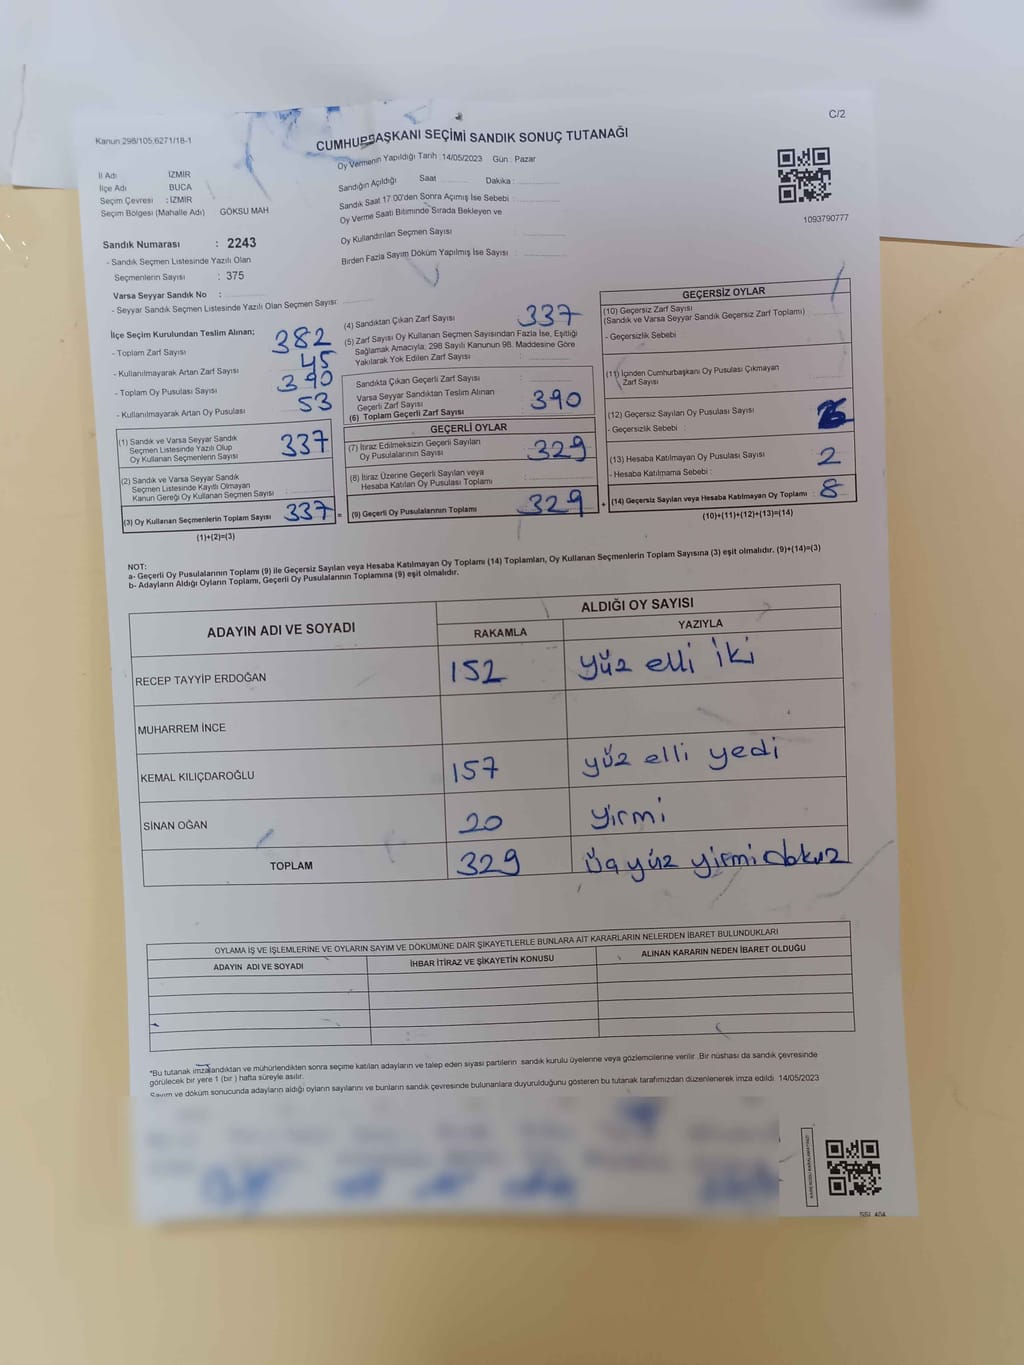 C/2
Kanun 298/105,6271/18-1
CUMHURBAŞKANI SEÇİMİ SANDIK SONUÇ TUTANAĞI
Oy Vermenin Yapıldığı Tarih : 14/05/2023 Gün : Pazar
İl Adı İZMİR
İlçe Adı BUCA
Seçim Çevresi : İZMİR
Seçim Bölgesi (Mahalle Adı) GÖKSU MAH
Sandığın Açıldığı Saat Dakika :
Sandık Saat 17.00'den Sonra Açımış İse Sebebi :
Oy Verme Saati Bitiminde Sırada Bekleyen ve
Oy Kullandırılan Seçmen Sayısı :
Birden Fazla Sayım Döküm Yapılmış İse Sayısı :
1093790777
Sandık Numarası : 2243
- Sandık Seçmen Listesinde Yazılı Olan
Seçmenlerin Sayısı : 375
Varsa Seyyar Sandık No :
- Seyyar Sandık Seçmen Listesinde Yazılı Olan Seçmen Sayısı:
İlçe Seçim Kurulundan Teslim Alınan;
- Toplam Zarf Sayısı 382
- Kullanılmayarak Artan Zarf Sayısı 45
- Toplam Oy Pusulası Sayısı 390
- Kullanılmayarak Artan Oy Pusulası 53
(1) Sandık ve Varsa Seyyar Sandık
Seçmen Listesinde Yazılı Olup
Oy Kullanan Seçmenlerin Sayısı 337
(2) Sandık ve Varsa Seyyar Sandık
Seçmen Listesinde Kayıtlı Olmayan
Kanun Gereği Oy Kullanan Seçmen Sayısı
(3) Oy Kullanan Seçmenlerin Toplam Sayısı 337 =
(1)+(2)=(3)
(4) Sandıktan Çıkan Zarf Sayısı 337
(5) Zarf Sayısı Oy Kullanan Seçmen Sayısından Fazla İse, Eşitliği
Sağlamak Amacıyla, 298 Sayılı Kanunun 98. Maddesine Göre
Yakılarak Yok Edilen Zarf Sayısı :
Sandıkta Çıkan Geçerli Zarf Sayısı :
Varsa Seyyar Sandıktan Teslim Alınan
Geçerli Zarf Sayısı
(6) Toplam Geçerli Zarf Sayısı 390
GEÇERLİ OYLAR
(7) İtiraz Edilmeksizin Geçerli Sayılan
Oy Pusulalarının Sayısı 329
(8) İtiraz Üzerine Geçerli Sayılan veya
Hesaba Katılan Oy Pusulası Toplamı
(9) Geçerli Oy Pusulalarının Toplamı 329 +
GEÇERSİZ OYLAR
(10) Geçersiz Zarf Sayısı
(Sandık ve Varsa Seyyar Sandık Geçersiz Zarf Toplamı)
- Geçersizlik Sebebi
(11) İçinden Cumhurbaşkanı Oy Pusulası Çıkmayan
Zarf Sayısı
(12) Geçersiz Sayılan Oy Pusulası Sayısı
- Geçersizlik Sebebi :
(13) Hesaba Katılmayan Oy Pusulası Sayısı 2
- Hesaba Katılmama Sebebi :
(14) Geçersiz Sayılan veya Hesaba Katılmayan Oy Toplamı : 8
(10)+(11)+(12)+(13)=(14)
NOT:
a- Geçerli Oy Pusulalarının Toplamı (9) ile Geçersiz Sayılan veya Hesaba Katılmayan Oy Toplamı (14) Toplamları, Oy Kullanan Seçmenlerin Toplam Sayısına (3) eşit olmalıdır. (9)+(14)=(3)
b- Adayların Aldığı Oyların Toplamı, Geçerli Oy Pusulalarının Toplamına (9) eşit olmalıdır.
ADAYIN ADI VE SOYADI ALDIĞI OY SAYISI
RAKAMLA YAZIYLA
RECEP TAYYİP ERDOĞAN 152 yüz elli iki
MUHARREM İNCE
KEMAL KILIÇDAROĞLU 157 yüz elli yedi
SİNAN OĞAN 20 yirmi
TOPLAM 329 üç yüz yirmi dokuz
OYLAMA İŞ VE İŞLEMLERİNE VE OYLARIN SAYIM VE DÖKÜMÜNE DAİR ŞİKAYETLERLE BUNLARA AİT KARARLARIN NELERDEN İBARET BULUNDUKLARI
ADAYIN ADI VE SOYADI İHBAR İTİRAZ VE ŞİKAYETİN KONUSU ALINAN KARARIN NEDEN İBARET OLDUĞU
*Bu tutanak imzalandıktan ve mühürlendikten sonra seçime katılan adayların ve talep eden siyasi partilerin sandık kurulu üyelerine veya gözlemcilerine verilir. Bir nüshası da sandık çevresinde
görülecek bir yere 1 (bir ) hafta süreyle asılır.
Sayım ve döküm sonucunda adayların aldığı oyların sayılarını ve bunların sandık çevresinde bulunanlara duyurulduğunu gösteren bu tutanak tarafımızdan düzenlenerek imza edildi. 14/05/2023